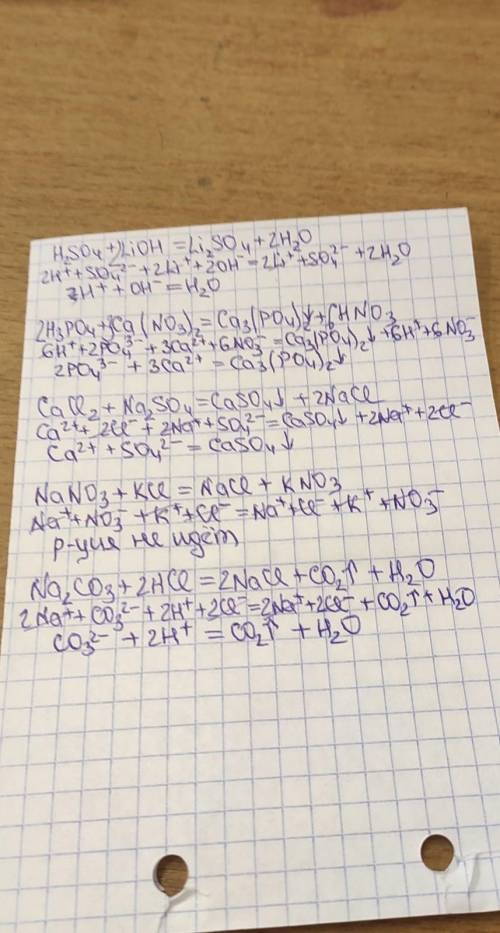 H₂SO₄ + 2LiOH = Li₂SO₄ + 2H₂O
2H⁺ + SO₄²⁻ + 2Li⁺ + 2OH⁻ = 2Li⁺ + SO₄²⁻ + 2H₂O
H⁺ + OH⁻ = H₂O
2H₃PO₄ + 3Ca(NO₃)₂ = Ca₃(PO₄)₂↓ + 6HNO₃
6H⁺ + 2PO₄³⁻ + 3Ca²⁺ + 6NO₃⁻ = Ca₃(PO₄)₂↓ + 6H⁺ + 6NO₃⁻
2PO₄³⁻ + 3Ca²⁺ = Ca₃(PO₄)₂↓
CaCl₂ + Na₂SO₄ = CaSO₄↓ + 2NaCl
Ca²⁺ + 2Cl⁻ + 2Na⁺ + SO₄²⁻ = CaSO₄↓ + 2Na⁺ + 2Cl⁻
Ca²⁺ + SO₄²⁻ = CaSO₄↓
NaNO₃ + KCl = NaCl + KNO₃
Na⁺ + NO₃⁻ + K⁺ + Cl⁻ = Na⁺ + Cl⁻ + K⁺ + NO₃⁻
р-ция не идёт
Na₂CO₃ + 2HCl = 2NaCl + CO₂↑ + H₂O
2Na⁺ + CO₃²⁻ + 2H⁺ + 2Cl⁻ = 2Na⁺ + 2Cl⁻ + CO₂↑ + H₂O
CO₃²⁻ + 2H⁺ = CO₂↑ + H₂O